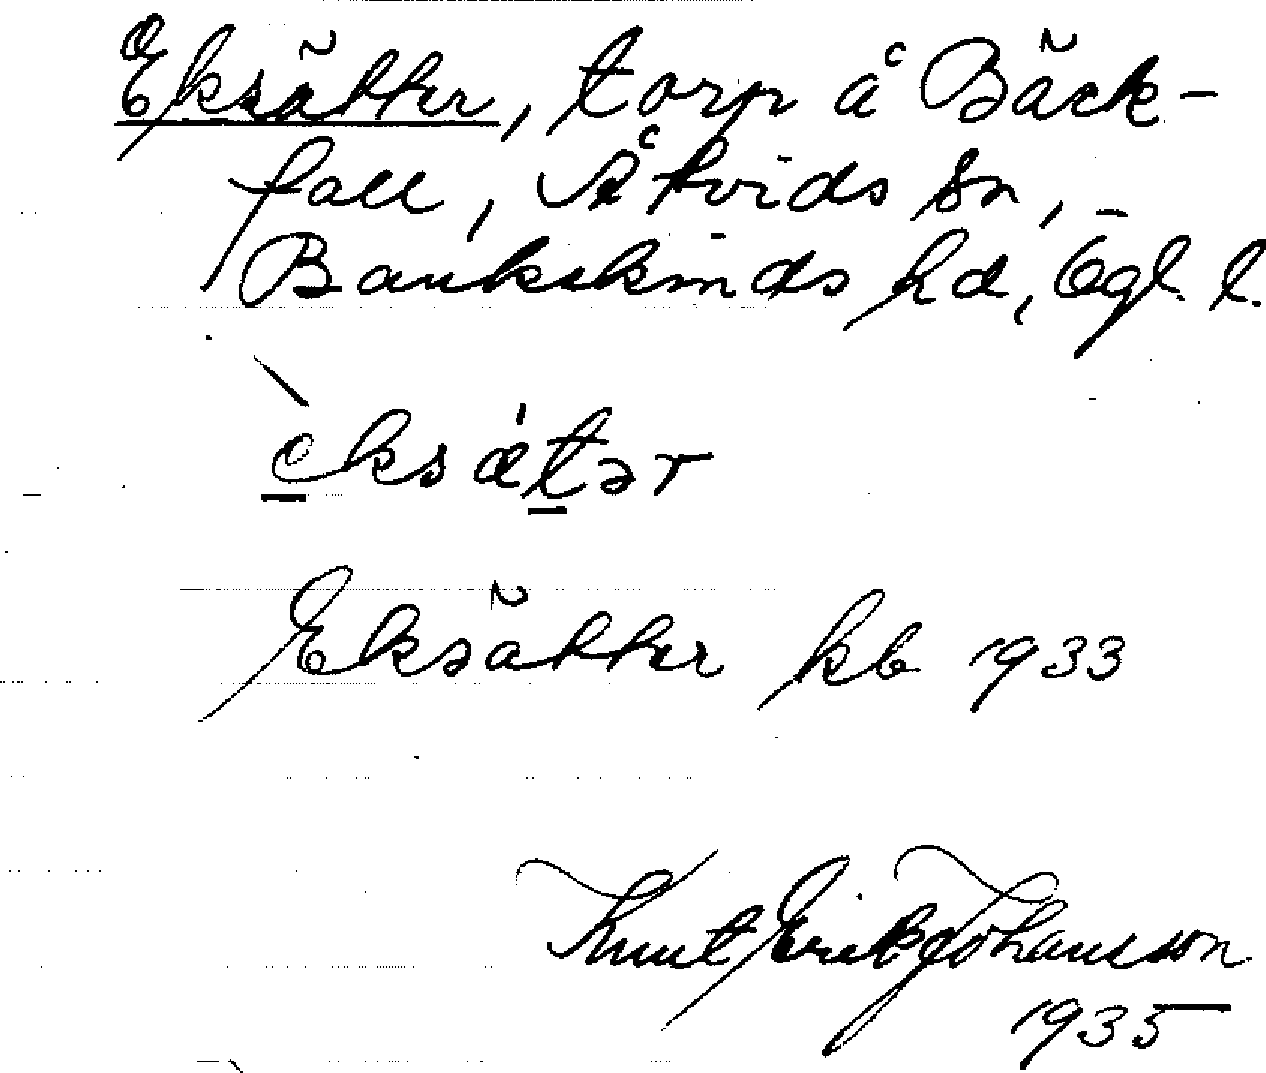 Eksätter, torp å Bäck-
fall, Åtvids sn,
Bankekinds hd, Ögl. l.
èksæ̍tər
Eksätter kb 1933
Knut Erik Johansson
1935